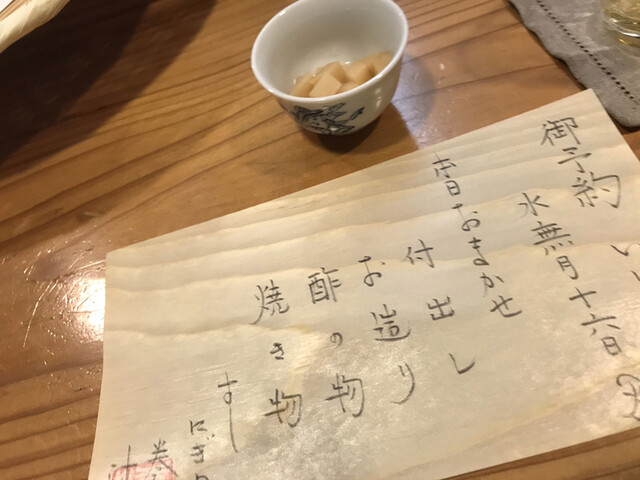 御予約
水無月十六日
本日おまかせ
付出し
お造り
酢の物
焼き物
すし
にぎり
巻
汁